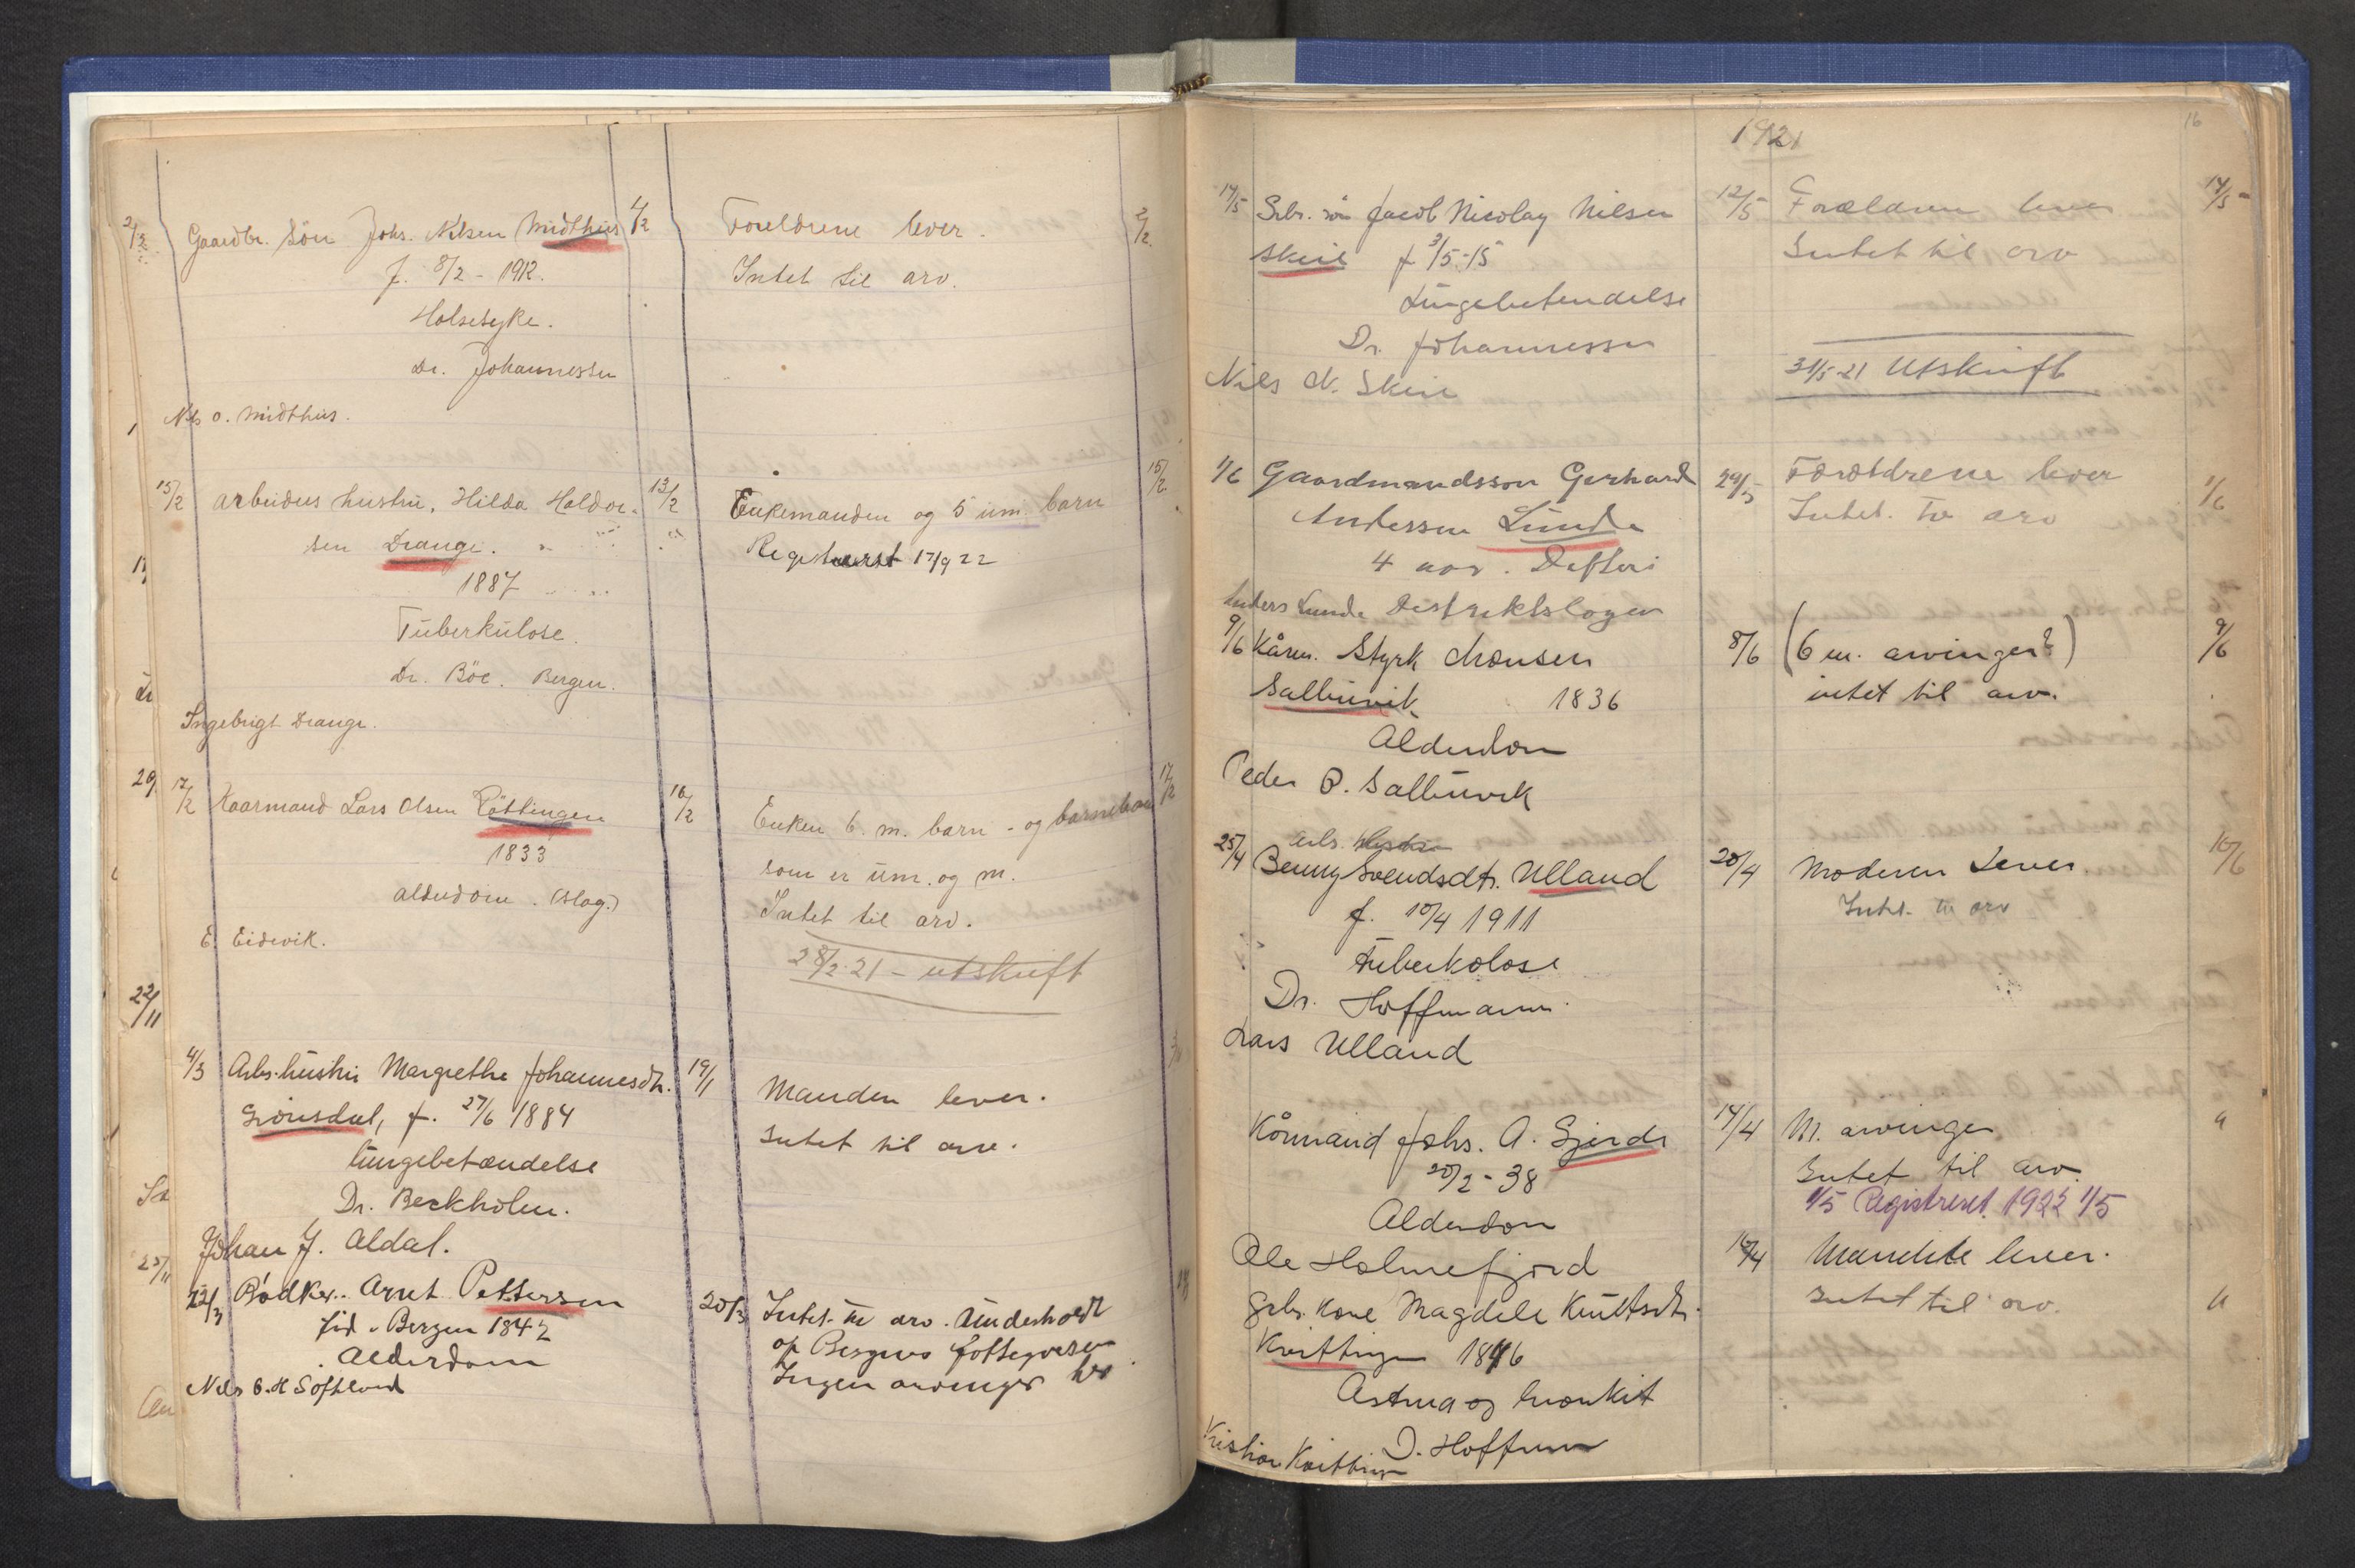 2/2 Gaardbr. Søn Johs. Nilsen Midthus 1/2 Foreldrene lever. 2/2
f. 8/2 - 1912. Intet til arv.
Halsesyke.
Dr. Johannessen
Nils O. Midthus.
15/2 Arbeiders hustru, Hilda Haldor- 13/2 Enkemanden og 5 um. barn 15/2
sen Drange. Registrerst 17/9 22
1887
Tuberkulose.
Dr. Böe. Bergen.
Ingebrigt Drange.
17/2 Kaarmand Lars Olsen Röttingen 16/2 Enken 6. m. barn - og barnebarn 17/2
1833 som er um. og m.
alderdom. (slag.) Intet til arv.
E. Eidsvik. 28/2 21 - utskrift
4/3 Arbs. hustru Margrethe Johannesdtr. 19/1 Manden lever.
Grönsdal, f. 27/6 1884 Intet til arv.
lungebetændelse
Dr. Beckholm.
Johan J. Aldal.
22/3 Bødker. Arnt Pettersen 20/3 Intet til arv. Underholdt
fød. Bergen 1842 af Bergens fattigvesen
Alderdom Ingen arvinger her
Nils B. H Softland
20/
22/11
25/11
1921
16
14/5 Grbr. søn Jacob Nicolay Nilsen 12/5 Forældrene lever 14/5
Skeie f 3/5-15 Intet til arv
Lungebetendelse
Dr. Johannessen
Nils N. Skeie 31/5-21 Utskrift
1/6 Gaardmandsson Gerhard 29/5 Foreldrene lever 1/6
Anderssen Lunde Intet. til arv
4 aar. Difteri
Anders Lunde Distriktslægen
9/6 Kårm. Styrk Monsen 8/6 (6 m. arvinger?) 9/6
Salbuvik 1836 intet til arv.
Alderdom
Peder P. Salbuvik
Arb.
25/4 Benny Svendsdtr. Ulland 20/4 Moderen Lever
f. 10/4 1911 Intet til arv
Tuberkolose
Dr. Hoffmann.
Lars Ulland
Kårmand Johs. A. Gjerde 14/4 M. arvinger "
20/2 - 38 Intet til arv.
Alderdom 1/5 Registreret 1922 1/5
Ole Holmefjord 10/4 Mandete lever.
Grbr. kone Magdele Knutsdtr. Intet til arv. "
Kvittingen 1846
Astma og bronkit
D. Hoffmann
Kristian Kvittingen